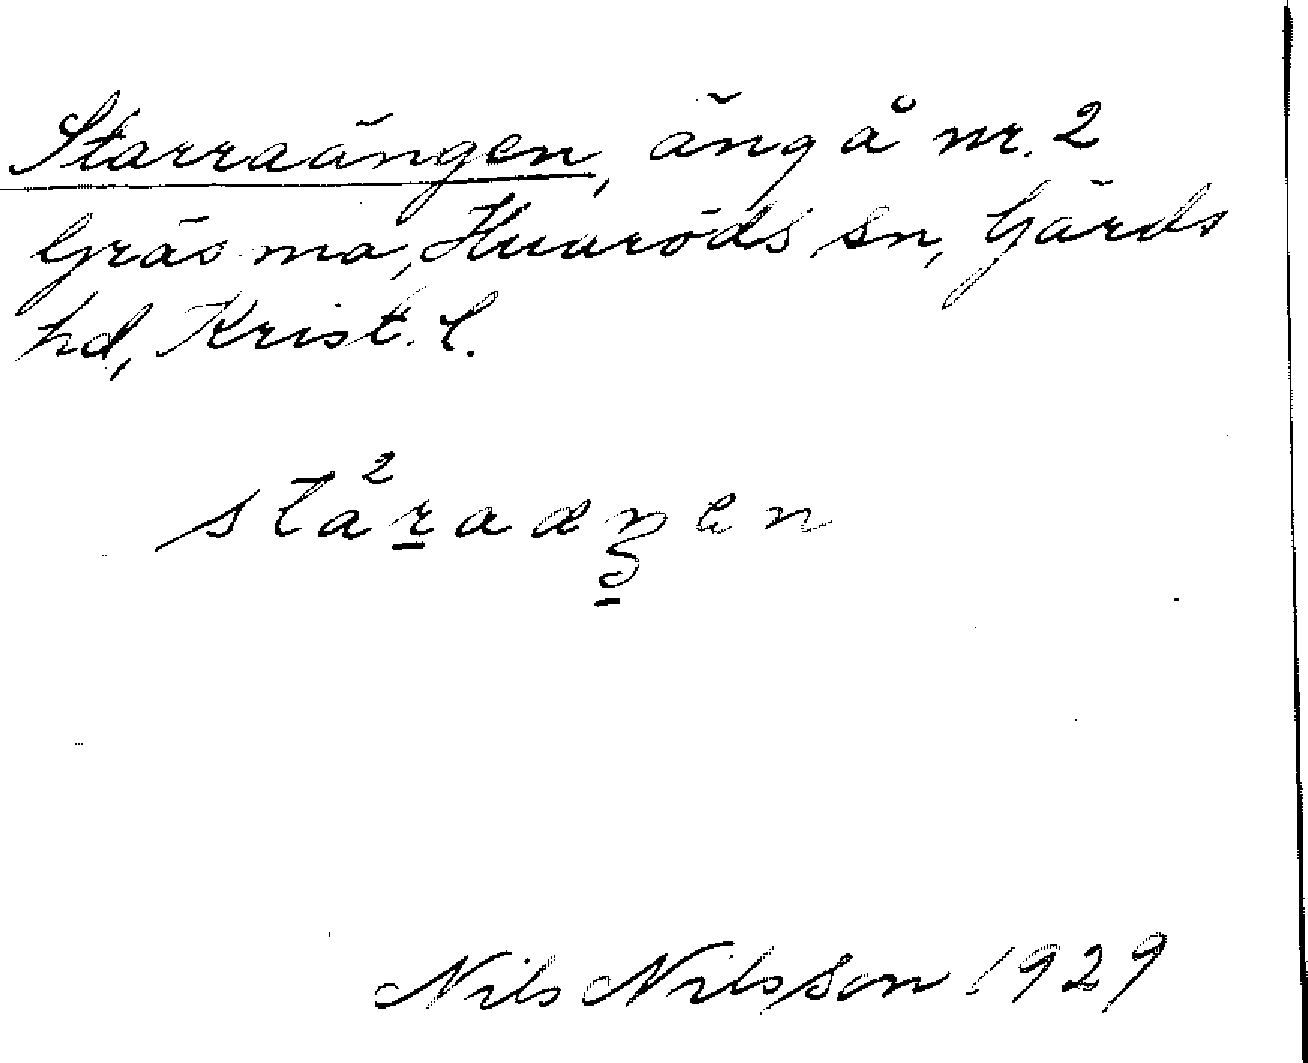 Starraängen, äng å nr. 2
Gräsma, Huaröds sn, Gärds
hd, Krist. l.
stа̊²raæŋen
Nils Nilsson 1929